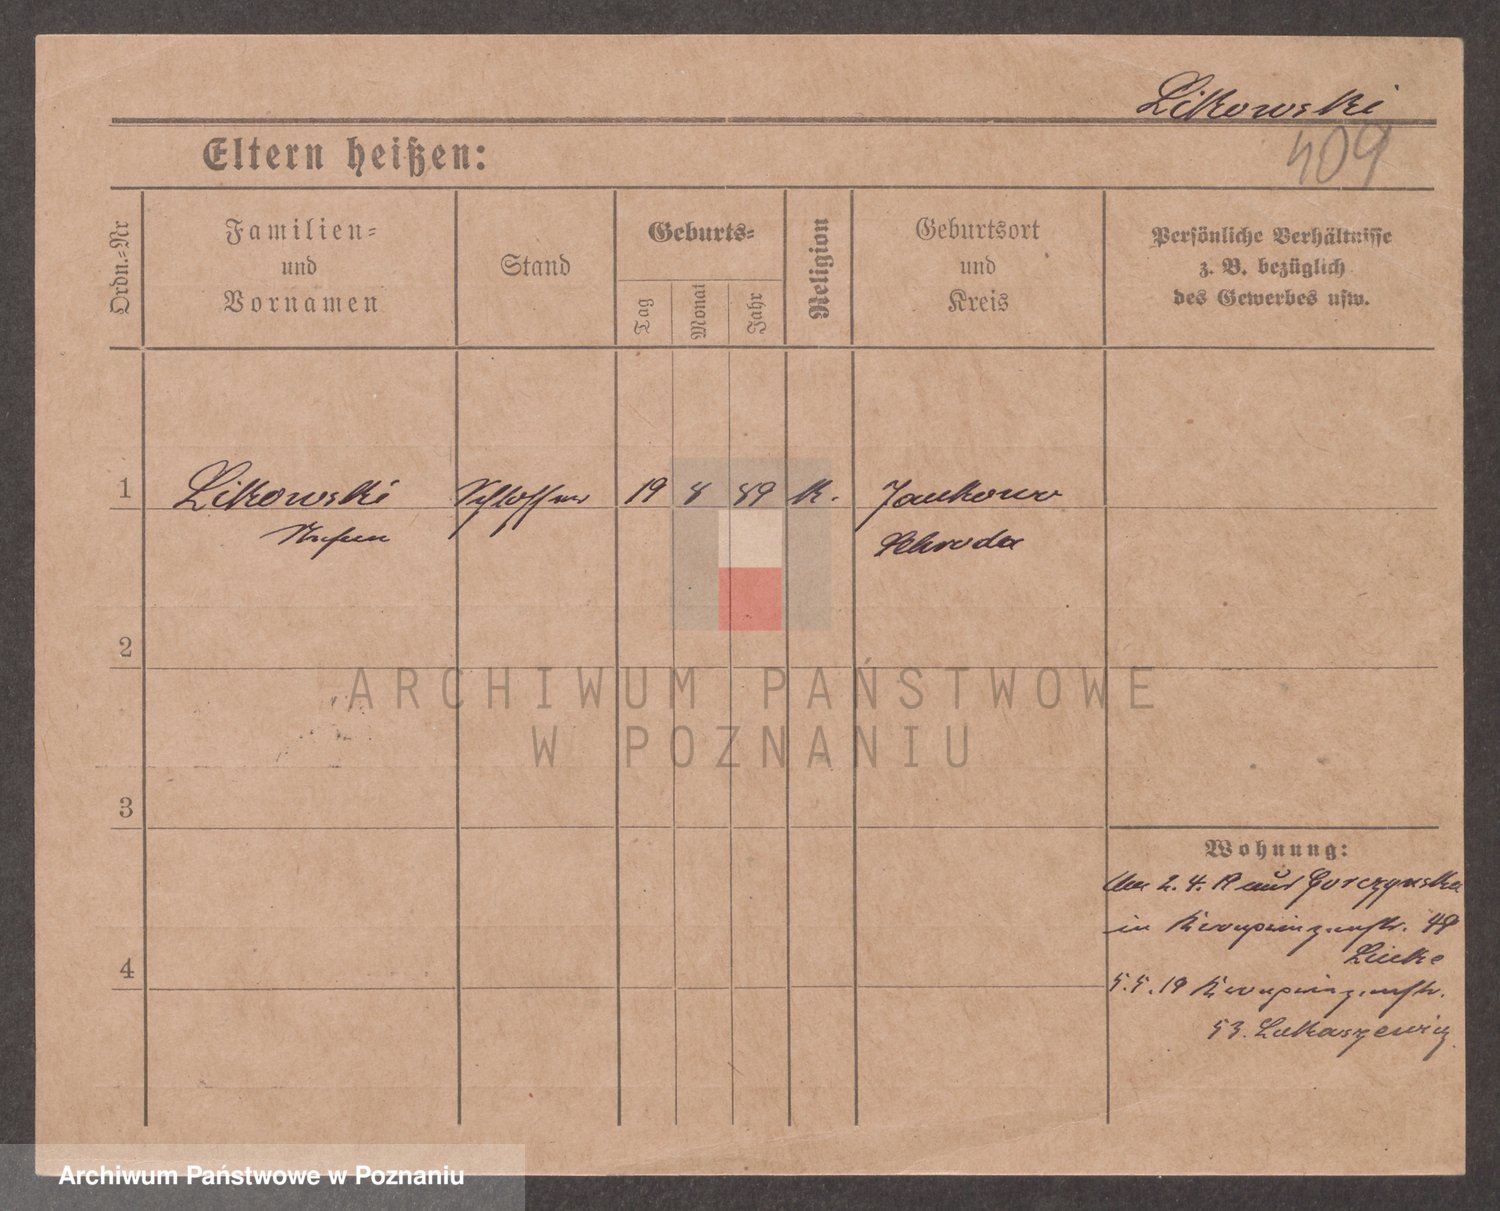 Likowski
409
Eltern heißen:
Ordn.-Nr
Familien=
und
Vornamen
Stand
Geburts=
Tag
Monat
Jahr
Religion
Geburtsort
und
Kreis
Persönliche Verhältnisse
z. B. bezüglich
des Gewerbes usw.
1 Likowski Schlosser 19 8 89 K. Jankowo
Schroda
2
3
4
Wohnung:
2. 4. 19 aus Gorczynska
in Kronprinzenstr. 48
Lücke
5.5.19 Kronprinzenstr.
53. Lukaszewicz
ARCHIWUM PAŃSTWOWE
W POZNANIU
Archiwum Państwowe w Poznaniu